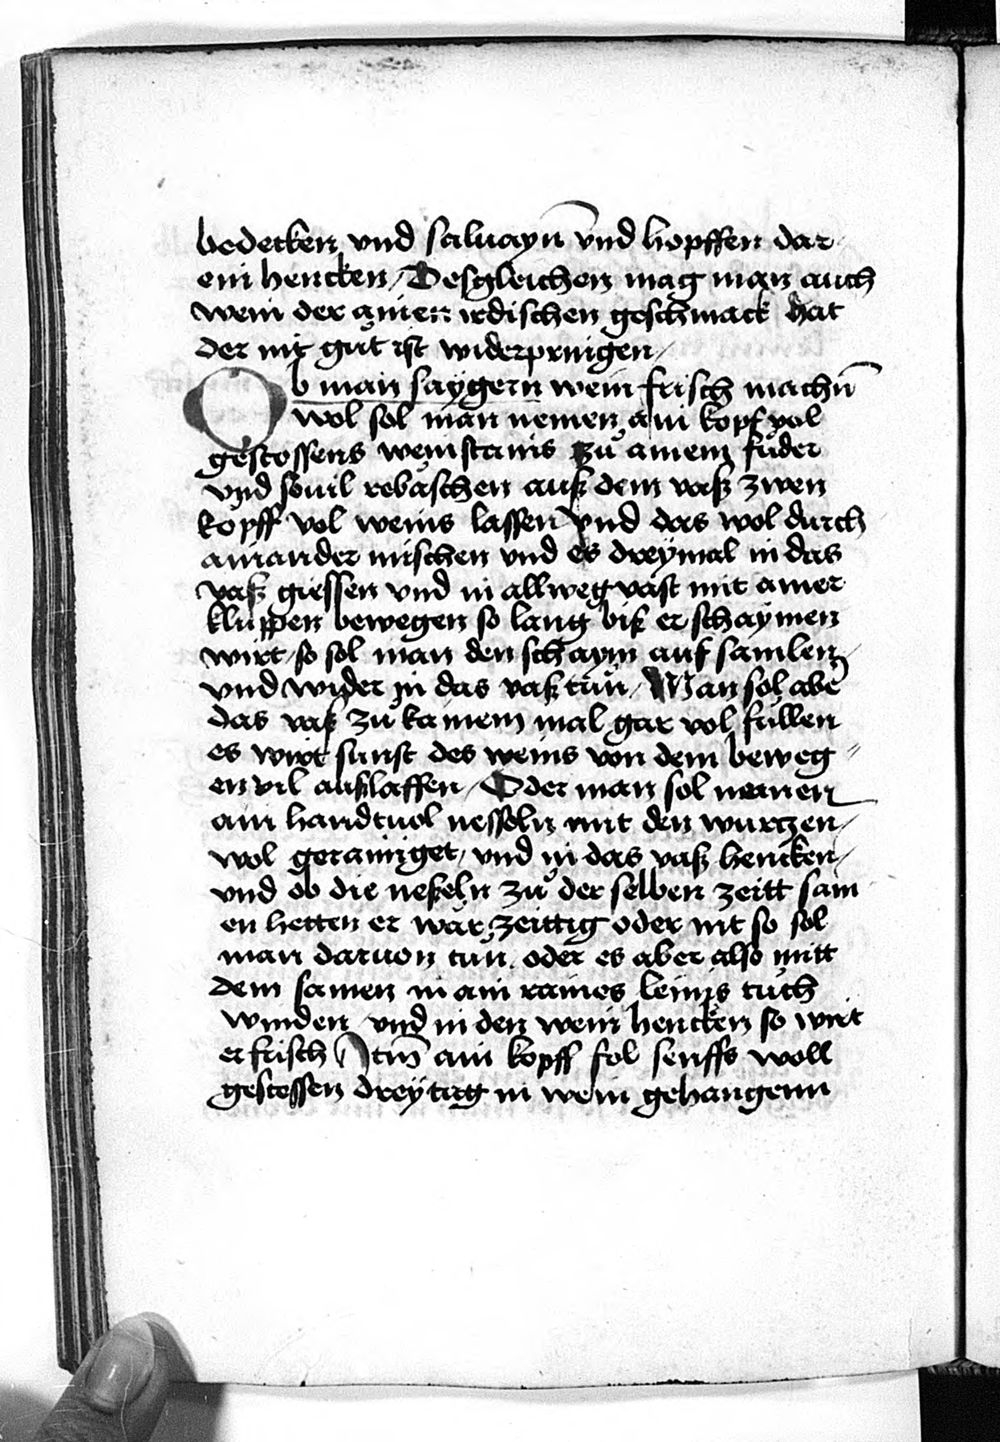 bedecken vnd saluayn̄ vnd hopffen dar
ein hencken / Desgleichen mag man auch
wein der ainen irdischen geschmack hat
der nit gůt ist widerpringen /
Ob man saygern wein frisch machn̄
wol sol man nemen ain kopf vol
gestossens weinstains zů ainem fůder
vnd souil rebaschen auß dem vaß zwen
kopff vol weins lassen vnd das wol durch
ainander mischen vnd es dreymal in das
vaß giessen vnd in allweg vast mit ainer
kluppen bewegen so lang biß er schaymen
wirt / so sol man den schaym auf samlen /
vnd wider in das vaß tůn / Man sol abe͂
das vaß zů kainem mal gar vol füllen
es wirt sunst des weins von dem beweg=
en vil außlassen / Oder man sol nemen
ain handtuol nesseln mit den wurtzen /
wol gerainiget / vnd in das vaß hencken /
vnd ob die neßeln zů der selben zeitt sam
en hetten er wär zeittig oder nit so sol
man daruon tůn. oder es aber also mitt
dem samen in ain raines leinis tůch
winden vnd in den wein hencken so wirt
er frisch Itm̄ ain kopff fol senffs woll
gestossen drey tag in wein gehangenn